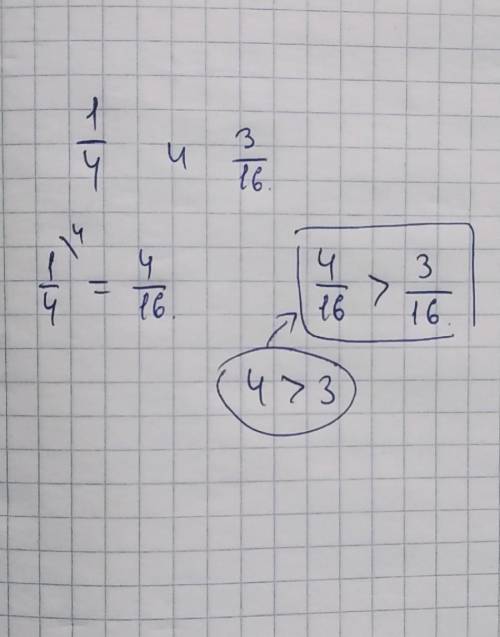 1/4 и 3/16.
1/4 \4 = 4/16.
4/16 > 3/16.
4 > 3